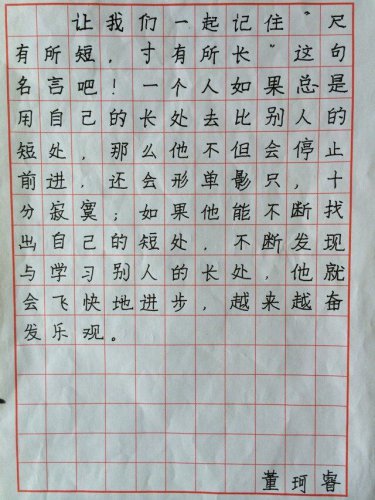 让我们一起记住“尺
有所短，寸有所长”这句
名言吧！一个人如果总是
用自己的长处去比别人的
短处，那么他不但会停止
前进，还会形单影只，十
分寂寞；如果他能不断找
出自己的短处，不断发现
与学习别人的长处，他就
会飞快地进步，越来越奋
发乐观。
董珂睿